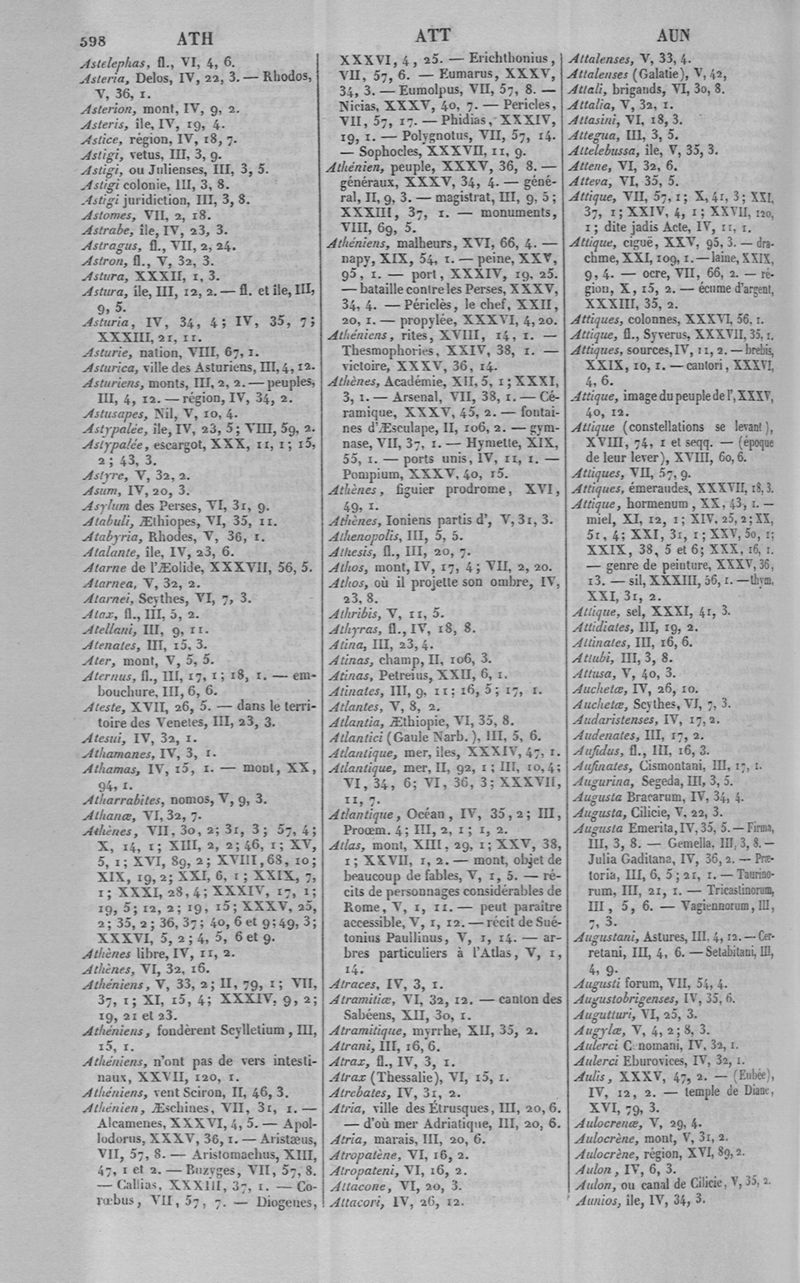 598 ATH ATT AUN
Astelephas, fl., VI, 4, 6.
Asteria, Delos, IV, 22, 3. — Rhodos,
V, 36, 1.
Asterion, mont, IV, 9, 2.
Asteris, île, IV, 19, 4.
Astice, région, IV, 18, 7.
Astigi, vetus, III, 3, 9.
Astigi, ou Julienses, III, 3, 5.
Astigi colonie, III, 3, 8.
Astigi juridiction, III, 3, 8.
Astomes, VII, 2, 18.
Astrabe, île, IV, 23, 3.
Astragus, fl., VII, 2, 24.
Astron, fl., V, 32, 3.
Astura, XXXII, 1, 3.
Astura, île, III, 12, 2. — fl. et île, III,
9, 5.
Asturia, IV, 34, 4; IV, 35, 7;
XXXIII, 21, 11.
Asturie, nation, VIII, 67, 1.
Asturica, ville des Asturiens, III, 4, 12.
Asturiens, monts, III, 2, 2. — peuples,
III, 4, 12. — région, IV, 34, 2.
Astusapes, Nil, V, 10, 4.
Astypalée, île, IV, 23, 5; VIII, 59, 2.
Astypalée, escargot, XXX, 11, 1; 15,
2; 43, 3.
Astyre, V, 32, 2.
Asum, IV, 20, 3.
Asylum des Perses, VI, 31, 9.
Atabuli, Æthiopes, VI, 35, 11.
Atabyria, Rhodes, V, 36, 1.
Atalante, île, IV, 23, 6.
Atarne de l'Æolide, XXXVII, 56, 5.
Atarnea, V, 32, 2.
Atarnei, Scythes, VI, 7, 3.
Atax, fl., III, 5, 2.
Atellani, III, 9, 11.
Atenates, III, 15, 3.
Ater, mont, V, 5, 5.
Aternus, fl., III, 17, 1; 18, 1. — em-
bouchure, III, 6, 6.
Ateste, XVII, 26, 5. — dans le terri-
toire des Venetes, III, 23, 3.
Atesui, IV, 32, 1.
Athamanes, IV, 3, 1.
Athamas, IV, 15, 1. — mont, XX,
94, 1.
Atharrabites, nomos, V, 9, 3.
Athanæ, VI, 32, 7.
Athènes, VII, 30, 2; 31, 3; 57, 4;
X, 14, 1; XIII, 2, 2; 46, 1; XV,
5, 1; XVI, 89, 2; XVIII, 68, 10;
XIX, 19, 2; XXI, 6, 1; XXIX, 7,
1; XXXI, 28, 4; XXXIV, 17, 1;
19, 5; 12, 2; 19, 15; XXXV, 25,
2; 35, 2; 36, 37; 40, 6 et 9; 49, 3;
XXXVI, 5, 2; 4, 5, 6 et 9.
Athènes libre, IV, 11, 2.
Athènes, VI, 32, 16.
Athéniens, V, 33, 2; II, 79, 1; VII,
37, 1; XI, 15, 4; XXXIV, 9, 2;
19, 21 et 23.
Athéniens, fondèrent Scylletium, III,
15, 1.
Athéniens, n'ont pas de vers intesti-
naux, XXVII, 120, 1.
Athéniens, vent Sciron, II, 46, 3.
Athénien, Æschines, VII, 31, 1. —
Alcamenes, XXXVI, 4, 5. — Apol-
lodorus, XXXV, 36, 1. — Aristæus,
VII, 57, 8. — Aristomachus, XIII,
47, 1 et 2. — Buzyges, VII, 57, 8.
— Callias, XXXIII, 37, 1. — Co-
rœbus, VII, 57, 7. — Diogenes,
XXXVI, 4, 25. — Erichthonius,
VII, 57, 6. — Eumarus, XXXV,
34, 3. — Eumolpus, VII, 57, 8. —
Nicias, XXXV, 40, 7. — Pericles,
VII, 57, 17. — Phidias, XXXIV,
19, 1. — Polygnotus, VII, 57, 14.
— Sophocles, XXXVII, 11, 9.
Athénien, peuple, XXXV, 36, 8. —
généraux, XXXV, 34, 4. — géné-
ral, II, 9, 3. — magistrat, III, 9, 5;
XXXIII, 37, 1. — monuments,
VIII, 69, 5.
Athéniens, malheurs, XVI, 66, 4. —
napy, XIX, 54, 1. — peine, XXV,
95, 1. — port, XXXIV, 19, 25.
— bataille contre les Perses, XXXV,
34, 4. — Périclès, le chef, XXII,
20, 1. — propylée, XXXVI, 4, 20.
Athéniens, rites, XVIII, 14, 1. —
Thesmophories, XXIV, 38, 1. —
victoire, XXXV, 36, 14.
Athènes, Académie, XII, 5, 1; XXXI,
3, 1. — Arsenal, VII, 38, 1. — Cé-
ramique, XXXV, 45, 2. — fontai-
nes d'Æsculape, II, 106, 2. — gym-
nase, VII, 37, 1. — Hymette, XIX,
55, 1. — ports unis, IV, 11, 1. —
Pompium, XXXV, 40, 15.
Athènes, figuier prodrome, XVI,
49, 1.
Athènes, Ioniens partis d', V, 31, 3.
Athenopolis, III, 5, 5.
Athesis, fl., III, 20, 7.
Athos, mont, IV, 17, 4; VII, 2, 20.
Athos, où il projette son ombre, IV,
23, 8.
Athribis, V, 11, 5.
Athyras, fl., IV, 18, 8.
Atina, III, 23, 4.
Atinas, champ, II, 106, 3.
Atinas, Petreius, XXII, 6, 1.
Atinates, III, 9, 11; 16, 5; 17, 1.
Atlantes, V, 8, 2.
Atlantia, Æthiopie, VI, 35, 8.
Atlantici (Gaule Narb.), III, 5, 6.
Atlantique, mer, îles, XXXIV, 47, 1.
Atlantique, mer, II, 92, 1; III, 10, 4;
VI, 34, 6; VI, 36, 3; XXXVII,
11, 7.
Atlantique, Océan, IV, 35, 2; III,
Proœm. 4; III, 2, 1; 1, 2.
Atlas, mont, XIII, 29, 1; XXV, 38,
1; XXVII, 1, 2. — mont, objet de
beaucoup de fables, V, 1, 5. — ré-
cits de personnages considérables de
Rome, V, 1, 11. — peut paraître
accessible, V, 1, 12. — récit de Sué-
tonius Paullinus, V, 1, 14. — ar-
bres particuliers à l'Atlas, V, 1,
14.
Atraces, IV, 3, 1.
Atramitiæ, VI, 32, 12. — canton des
Sabéens, XII, 30, 1.
Atramitique, myrrhe, XII, 35, 2.
Atrani, III, 16, 6.
Atrax, fl., IV, 3, 1.
Atrax (Thessalie), VI, 15, 1.
Atrebates, IV, 31, 2.
Atria, ville des Étrusques, III, 20, 6.
— d'où mer Adriatique, III, 20, 6.
Atria, marais, III, 20, 6.
Atropatène, VI, 16, 2.
Atropateni, VI, 16, 2.
Attacone, VI, 20, 3.
Attacori, IV, 26, 12.
Attalenses, V, 33, 4.
Attalenses (Galatie), V, 42,
Attali, brigands, VI, 30, 8.
Attalia, V, 32, 1.
Attasini, VI, 18, 3.
Attegua, III, 3, 5.
Attelebussa, île, V, 35, 3.
Attene, VI, 32, 6.
Atteva, VI, 35, 5.
Attique, VII, 57, 1; X, 41, 3; XXI,
37, 1; XXIV, 4, 1; XXVII, 120,
1; dite jadis Acte, IV, 11, 1.
Attique, ciguë, XXV, 95, 3. — dra-
chme, XXI, 109, 1. — laine, XXIX,
9, 4. — ocre, VII, 66, 2. — ré-
gion, X, 15, 2. — écume d'argent,
XXXIII, 35, 2.
Attiques, colonnes, XXXVI, 56, 1.
Attique, fl., Syverus, XXXVII, 35, 1.
Attiques, sources, IV, 11, 2. — brebis,
XXIX, 10, 1. — cantori, XXXVI,
4, 6.
Attique, image du peuple de l', XXXV,
40, 12.
Attique (constellations se levant),
XVIII, 74, 1 et seqq. — (époque
de leur lever), XVIII, 60, 6.
Attiques, VII, 57, 9.
Attiques, émeraudes, XXXVII, 18, 3.
Attique, hormenum, XX, 43, 1. —
miel, XI, 12, 1; XIV, 25, 2; XX,
51, 4; XXI, 31, 1; XXV, 50, 1;
XXIX, 38, 5 et 6; XXX, 16, 1.
— genre de peinture, XXXV, 36,
13. — sil, XXXIII, 56, 1. — thym,
XXI, 31, 2.
Attique, sel, XXXI, 41, 3.
Attidiates, III, 19, 2.
Attinates, III, 16, 6.
Attubi, III, 3, 8.
Attusa, V, 40, 3.
Auchetæ, IV, 26, 10.
Auchetæ, Scythes, VI, 7, 3.
Audaristenses, IV, 17, 2.
Audenates, III, 17, 2.
Aufidus, fl., III, 16, 3.
Aufinates, Cismontani, III, 17, 1.
Augurina, Segeda, III, 3, 5.
Augusta Bracarum, IV, 34, 4.
Augusta, Cilicie, V, 22, 3.
Augusta Emerita, IV, 35, 5. — Firma,
III, 3, 8. — Gemella, III, 3, 8. —
Julia Gaditana, IV, 36, 2. — Præ-
toria, III, 6, 5; 21, 1. — Taurino-
rum, III, 21, 1. — Tricastinorum,
III, 5, 6. — Vagiennorum, III,
7, 3.
Augustani, Astures, III, 4, 12. — Cer-
retani, III, 4, 6. — Setabitani, III,
4, 9.
Augusti forum, VII, 54, 4.
Augustobrigenses, IV, 35, 6.
Augutturi, VI, 25, 3.
Augylæ, V, 4, 2; 8, 3.
Aulerci Cenomani, IV, 32, 1.
Aulerci Eburovices, IV, 32, 1.
Aulis, XXXV, 47, 2. — (Eubée),
IV, 12, 2. — temple de Diane,
XVI, 79, 3.
Aulocrenæ, V, 29, 4.
Aulocrène, mont, V, 31, 2.
Aulocrène, région, XVI, 89, 2.
Aulon, IV, 6, 3.
Aulon, ou canal de Cilicie, V, 35, 2.
Aunios, île, IV, 34, 3.